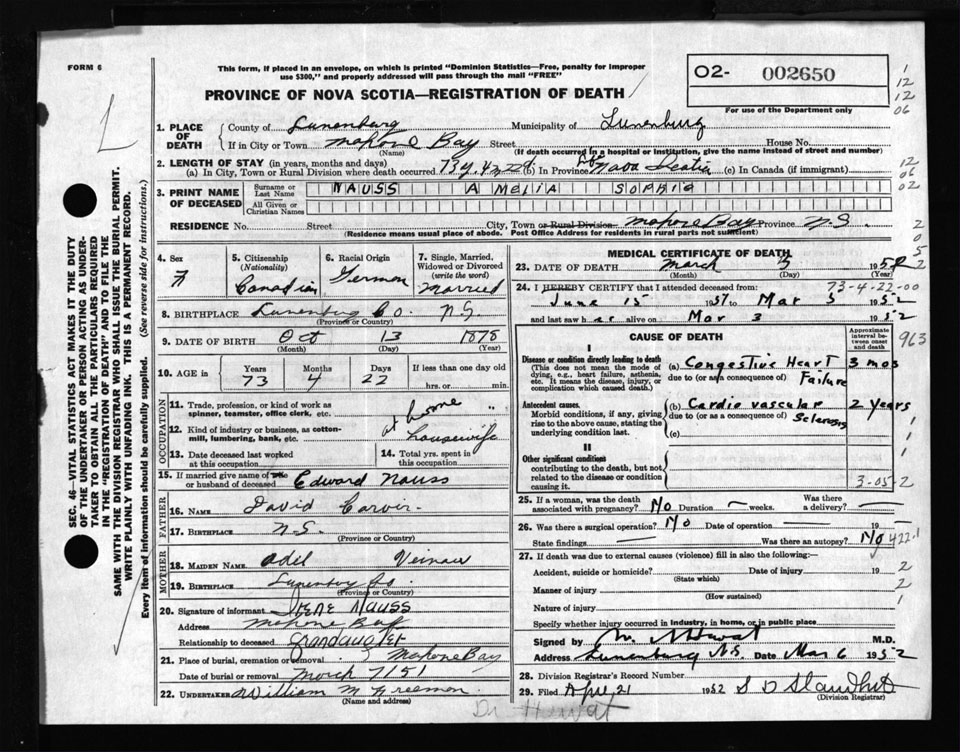 FORM 6
This form, if placed in an envelope, on which is printed "Dominion Statistics—Free, penalty for improper
use $300," and properly addressed will pass through the mail "FREE"
PROVINCE OF NOVA SCOTIA—REGISTRATION OF DEATH
O2- 002650
For use of the Department only
1
12
12
06
1. PLACE OF DEATH
County of Lunenburg Municipality of Lunenburg
If in City or Town Mahone Bay Street House No.
(Name) (If death occurred in a hospital or institution, give the name instead of street and number)
2. LENGTH OF STAY (in years, months and days)
(a) In City, Town or Rural Division where death occurred 73y. 4m 22d (b) In Province Life Nova Scotia (c) In Canada (if immigrant)
12
06
02
3. PRINT NAME OF DECEASED
Surname or Last Name NAUSS AMELIA SOPHIA
All Given or Christian Names
RESIDENCE No. Street City, Town or Rural Division Mahone Bay Province N.S.
(Residence means usual place of abode. Post Office Address for residents in rural parts not sufficient)
2
0
5
2
SEC. 46—VITAL STATISTICS ACT MAKES IT THE DUTY
OF THE UNDERTAKER OR PERSON ACTING AS UNDER-
TAKER TO OBTAIN ALL THE PARTICULARS REQUIRED
IN THE "REGISTRATION OF DEATH" AND TO FILE THE
SAME WITH THE DIVISION REGISTRAR WHO SHALL ISSUE THE BURIAL PERMIT.
WRITE PLAINLY WITH UNFADING INK. THIS IS A PERMANENT RECORD.
Every item of information should be carefully supplied. (See reverse side for instructions.)
4. Sex F
5. Citizenship (Nationality) Canadian
6. Racial Origin German
7. Single, Married, Widowed or Divorced (write the word) Married
8. BIRTHPLACE Lunenburg Co. N.S.
(Province or Country)
9. DATE OF BIRTH Oct 13 1878
(Month) (Day) (Year)
10. AGE in Years 73 Months 4 Days 22 If less than one day old hrs. or min.
OCCUPATION
11. Trade, profession, or kind of work as
spinner, teamster, office clerk, etc. at home "
12. Kind of industry or business, as cotton-
mill, lumbering, bank, etc. housewife
13. Date deceased last worked at this occupation
14. Total yrs. spent in this occupation
15. If married give name of wife
or husband of deceased Edward Nauss
FATHER
16. NAME David
17. BIRTHPLACE N.S.
(Province or Country)
MOTHER
18. MAIDEN NAME Adil
19. BIRTHPLACE Lunenburg Co.
(Province or Country)
20. Signature of informant Irene Nauss
Address Mahone Bay
Relationship to deceased
21. Place of burial, cremation or removal Mahone Bay
Date of burial or removal March 7 / 51
22. UNDERTAKER William M Freeman
(Name and address)
MEDICAL CERTIFICATE OF DEATH
23. DATE OF DEATH March 5 1952
(Month) (Day) (Year)
73-4-22-00
24. I HEREBY CERTIFY that I attended deceased from:
June 15 1951 to Mar 5 1952
and last saw her alive on Mar 3 1952
CAUSE OF DEATH
Approximate interval between onset and death
963
I
Disease or condition directly leading to death
(This does not mean the mode of
dying, e.g., heart failure, asthenia,
etc. It means the disease, injury, or
complication which caused death.)
(a) Congestive Heart 3 mos
due to (or as a consequence of) Failure
Antecedent causes.
Morbid conditions, if any, giving
rise to the above cause, stating the
underlying condition last.
(b) Cardio vascular 2 years
due to (or as a consequence of) Sclerosis
(c)
1
1
1
II
Other significant conditions
contributing to the death, but not
related to the disease or condition
causing it.
3-05-2
25. If a woman, was the death
associated with pregnancy? No Duration — weeks. Was there a delivery? —
26. Was there a surgical operation? No Date of operation — 19 —
State findings — Was there an autopsy? No
422.1
27. If death was due to external causes (violence) fill in also the following:—
Accident, suicide or homicide? Date of injury 19
(State which)
Manner of injury
(How sustained)
Nature of injury
2
2
1
Specify whether injury occurred in industry, in home, or in public place
Signed by M.D.
Address Lunenburg N.S. Date Mar 6 1952
28. Division Registrar's Record Number
29. Filed April 21 1952
(Division Registrar)
Dr. Hewat